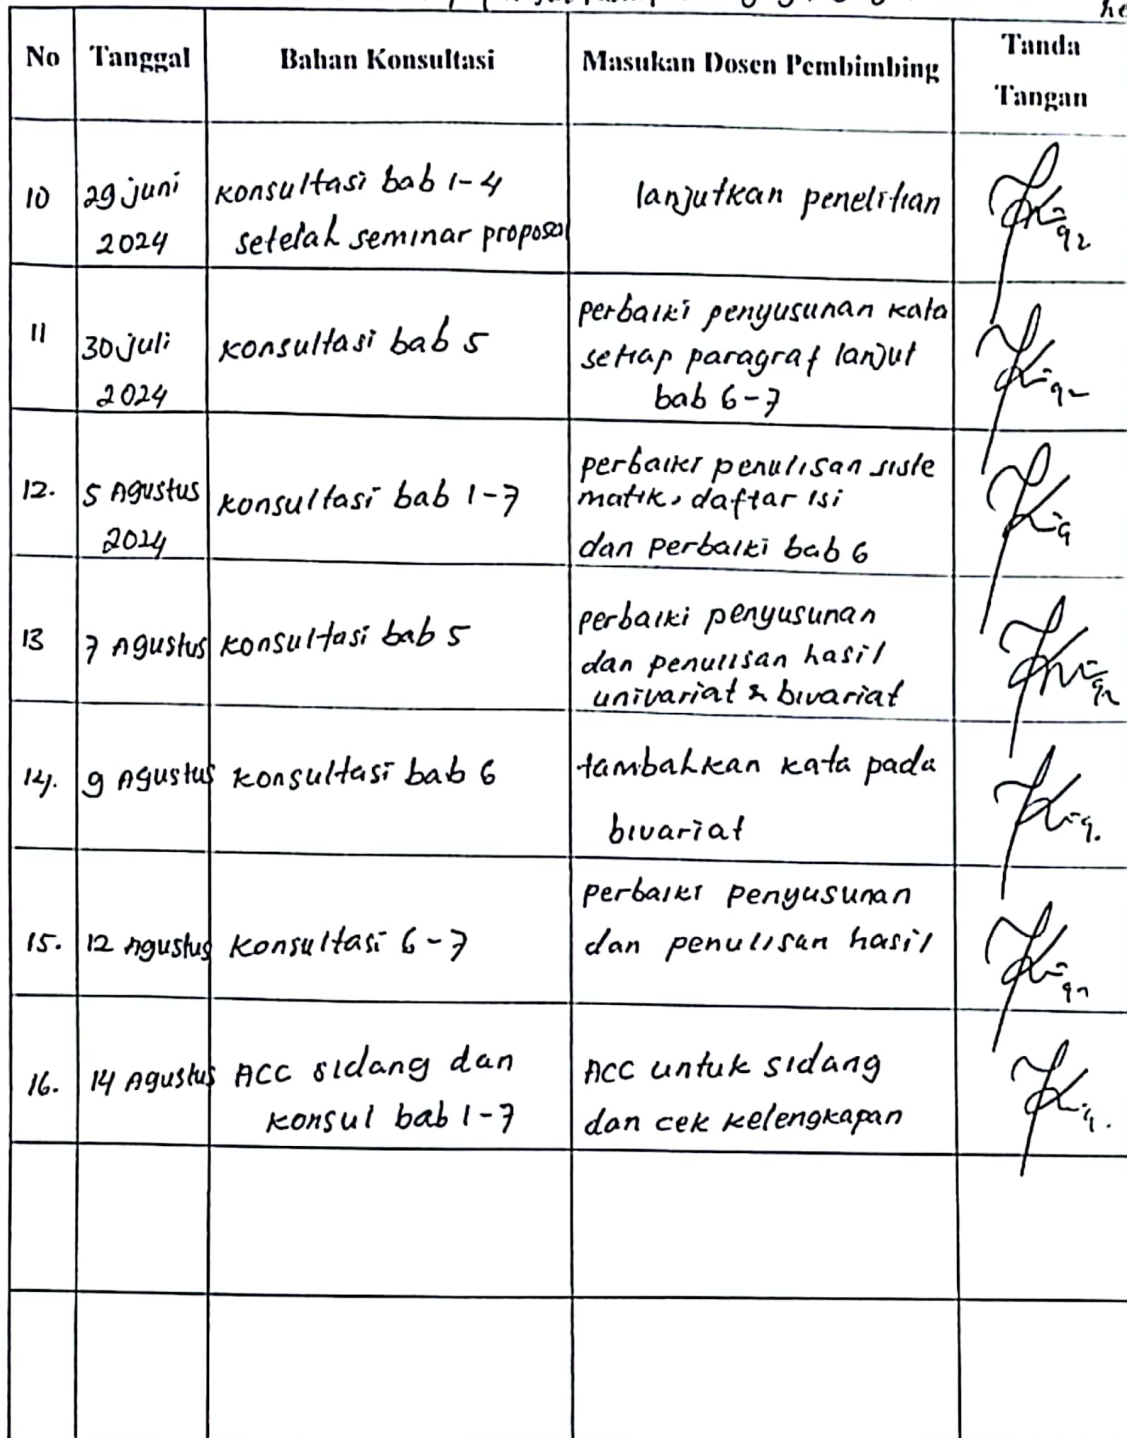 No Tanggal Bahan Konsultasi Masukan Dosen Pembimbing Tanda Tangan
10 29 juni 2024 konsultasi bab 1-4 setelah seminar proposal lanjutkan penelitian
11 30 juli 2024 konsultasi bab 5 perbaiki penyusunan kata setiap paragraf lanjut bab 6-7
12. 5 Agustus 2024 konsultasi bab 1-7 perbaiki penulisan siste matik, daftar isi dan perbaiki bab 6
13 7 Agustus konsultasi bab 5 perbaiki penyusunan dan penulisan hasil univariat & bivariat
14. 9 Agustus konsultasi bab 6 tambahkan kata pada bivariat
15. 12 Agustus konsultasi 6-7 perbaiki penyusunan dan penulisan hasil
16. 14 Agustus ACC sidang dan konsul bab 1-7 ACC untuk sidang dan cek kelengkapan